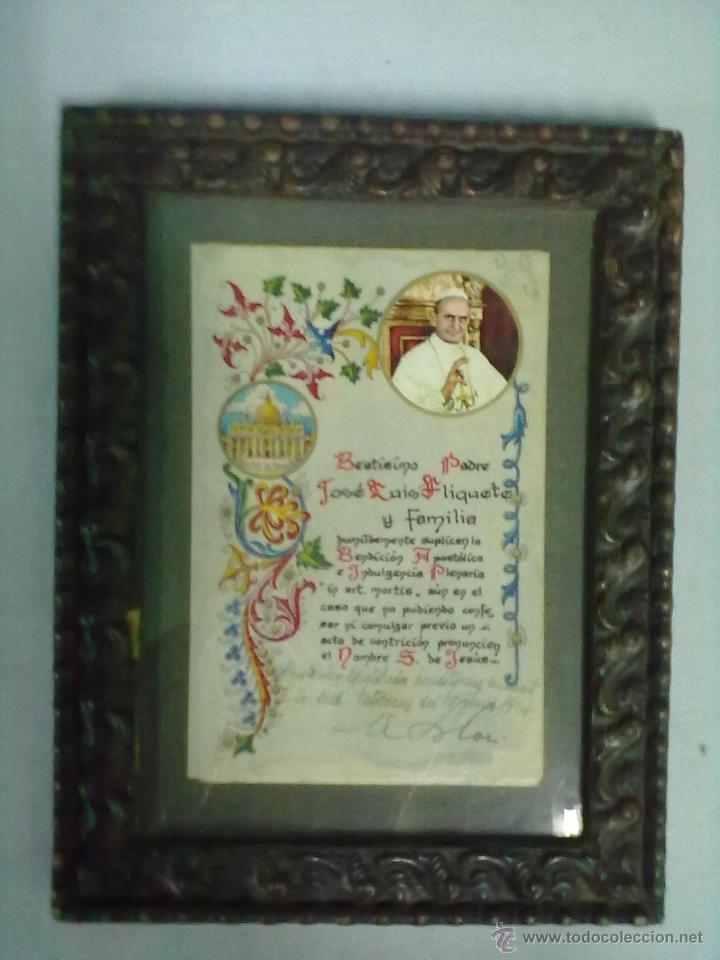 Beatísimo Padre
José Luis Fliquete
y Familia
humildemente suplican la
Bendición Apostólica
e Indulgencia Plenaria
"in art. mortis" aún en el
caso que no pudiendo confe
sar ni comulgar previo un
acto de contrición pronuncien
el Nombre S. de Jesús
www.todocoleccion.net